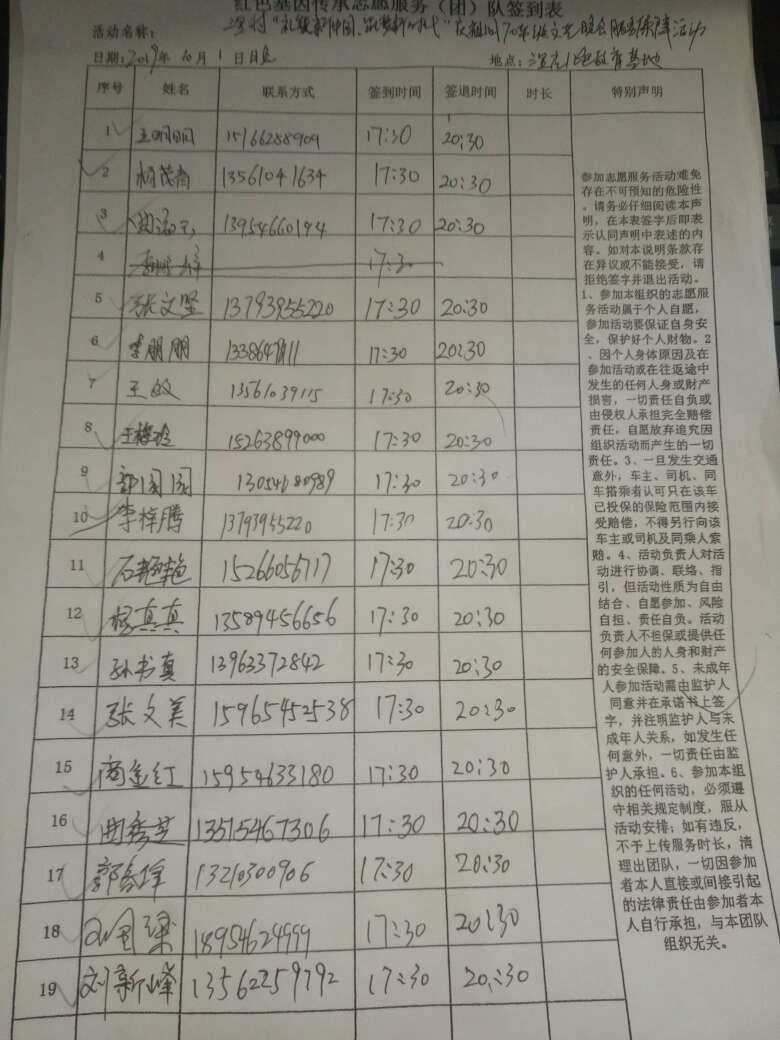 红色基因传承志愿服务（团）队签到表
活动名称：
日期：2019年10月1日 地点：
序号 姓名 联系方式 签到时间 签退时间 时长 特别声明
1 王明明 15166288909 17:30 20:30
2 13561041634 17:30 20:30
3 13954660194 17:30 20:30
4 17:30
5 张文坚 13793955220 17:30 20:30
6 李朋朋 17:30 20:30
7 王敏 13561039115 17:30 20:30
8 王梅玲 15263899000 17:30 20:30
9 17:30 20:30
10 李梓腾 13793955220 17:30 20:30
11 石艳艳 15266056717 17:30 20:30
12 杨真真 13589456656 17:30 20:30
13 孙书真 13963372842 17:30 20:30
14 张文美 15965452538 17:30 20:30
15 商金红 15954633180 17:30 20:30
16 曲秀芝 13515467306 17:30 20:30
17 13210300906 17:30 20:30
18 18954624999 17:30 20:30
19 刘新峰 13562259792 17:30 20:30
参加志愿服务活动难免
存在不可预知的危险性
，请务必仔细阅读本声
明，在本表签字后即表
示认同声明中表述的内
容。如对本说明条款存
在异议或不能接受，请
拒绝签字并退出活动。
1、参加本组织的志愿服
务活动属于个人自愿，
参加活动要保证自身安
全，保护好个人财物。2
、因个人身体原因及在
参加活动或在往返途中
发生的任何人身或财产
损害，一切责任自负或
由侵权人承担完全赔偿
责任，自愿放弃追究因
组织活动而产生的一切
责任。3、一旦发生交通
意外，车主、司机、同
车搭乘者认可只在该车
已投保的保险范围内接
受赔偿，不得另行向该
车主或司机及同乘人索
赔。4、活动负责人对活
动进行协调、联络、指
引，但活动性质为自由
结合、自愿参加、风险
自担、责任自负。活动
负责人不担保或提供任
何参加人的人身和财产
的安全保障。5、未成年
人参加活动需由监护人
同意并在承诺书上签
字，并注明监护人与未
成年人关系，如发生任
何意外，一切责任由监
护人承担。6、参加本组
织的任何活动，必须遵
守相关规定制度，服从
活动安排；如有违反，
不予上传服务时长，清
理出团队，一切因参加
者本人直接或间接引起
的法律责任由参加者本
人自行承担，与本团队
组织无关。